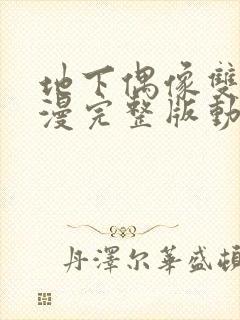 地下偶像雙
漫完整版動
丹澤尔華盛頓